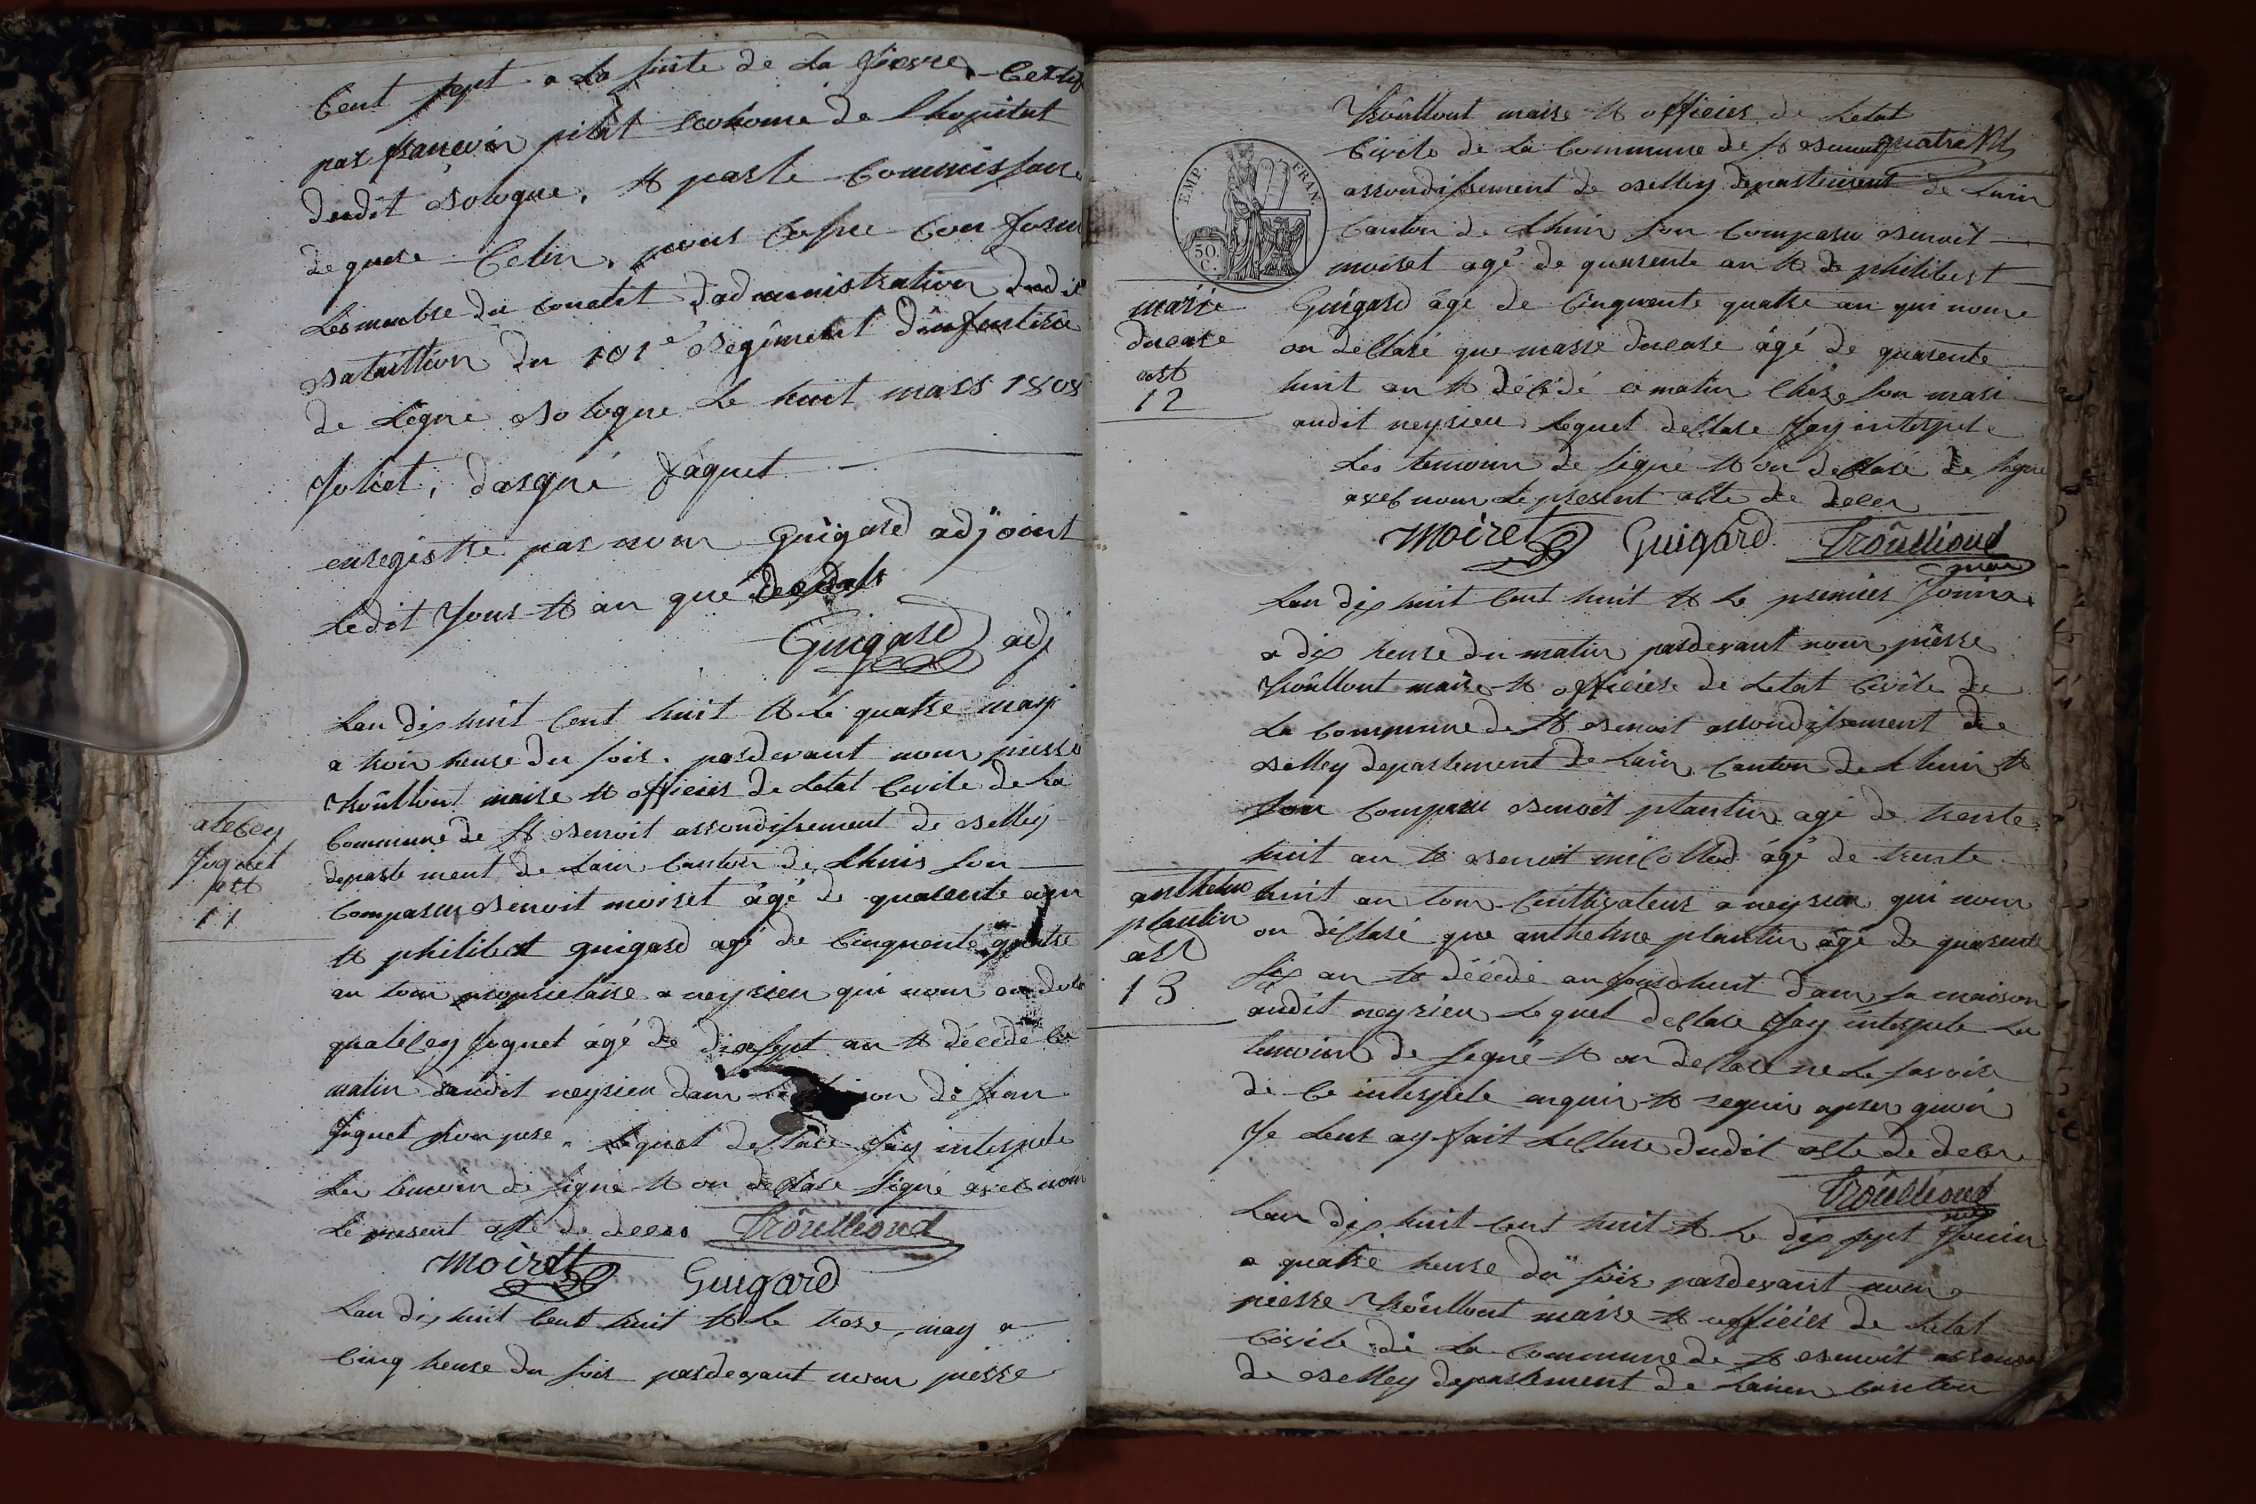 Cent sept a La suite de La fievre Certif
par francoin pitit Econome de Lhopital
dudit Bologne, et par le Commissaire
de guere Celin, pour Copie Conforme
Les membre du Conselt dadministration dudit
Bataillion du 101e Regiment dinfantirie
de Ligne Bologne Le huit mars 1808
Joliet, dargné Jaquet
enregistre par nous Guigard adjoint
Ledit Jour et an que
Guigard adj
Lan dix huit Cent huit et Le quatre may
a trois heure du soir pardevant nous pierre
Trouilloud maire et officier de Letat Civile de La
Commune de St Benoit arrondissement de Belley
departe ment de Lain Canton de Lhuis son
Comparu Benoit moiret âgé de quarente ans
et philibert guigard agé de Cinquente quatre
an tous proprietaire a neyrieu qui nous on de
quale Cey Joguet âgé de dix sept an et décédé Ce
matin audit neyrieu dans on de fran
Joguet Son pere. Lequel déClare Jay interpele
Les temoin de signe et on déClare Signé avec nous
Le present acte de deces Trouilloud
Moiret Guigard
Lan dix huit Cent huit et Le treze may a
Cinq heure du soir pardevant nous pierre
aleCey
Joguet
est
11
Trouilloud maire et officier de Letat
Civile de La Commune de St Benoit
arrondissement de Belley departement de Lain
Canton de Lhuis son Comparu Benoit
moiret agé de quarente an et de philibert
Guigard âgé de Cinquente quatre an qui nous
on déClaré que marie ducare âgé de quarente
huit an et décédé Ce matin Chere son mari
audit neyrieu Lequel deClare Jay interpele
Les temoin de signé et on déClaré de signe
avec nous Le present acte de deces
Moiret Guigard Trouilloud
maire
EMP. FRAN.
50
C.
marie
ducare
est
12
Lan dix huit Cent huit et Le premier Jouin
a dix heure du matin pardevant nous pierre
Trouilloud maire et officier de Letat Civile de
La Commune de St Benoit arrondissement de
Belley departement de Lain Canton de Lhuis et
son Comparu Benoit plantin agé de trente
huit an et Benoit miCollod âgé de trente
huit an tous Cultivateur a neyrieu qui nous
on déClaré que anthelme plantin âgé de quarente
six an et décédé aujourdhuit dans sa maison
audit neyrieu Lequel deClare Jay interpele Les
temoins de Segné et on déClaré ne Le savoire
de Ce interpele enquir et requir apres quoi
Je Leur ay fait LeCture dudit aCte de deces
Trouilloud
anthelme
plantin
est
13
Lan dix huit Cent huit et Le dix sept Jouin
a quatre heure du soir pardevant nous
pierre Trouilloud maire et officier de Letat
Civile de La Commune de St Benoit
de Belley departement de Lain Canton